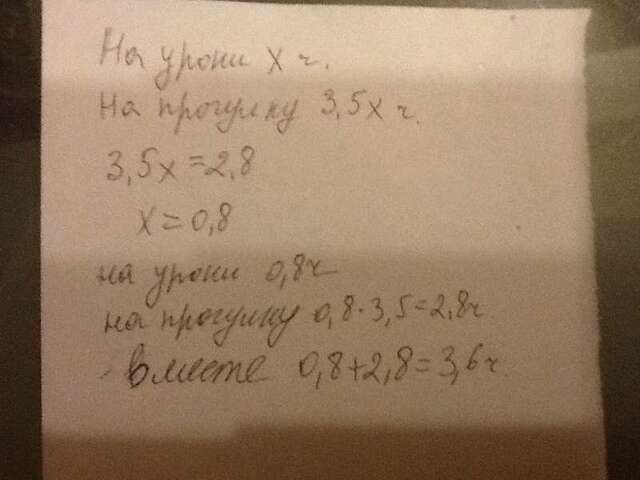 На уроки х ч.
На прогулку 3,5х ч.
3,5х=2,8
х=0,8
на уроки 0,8ч
на прогулку 0,8·3,5=2,8ч.
вместе 0,8+2,8=3,6ч.